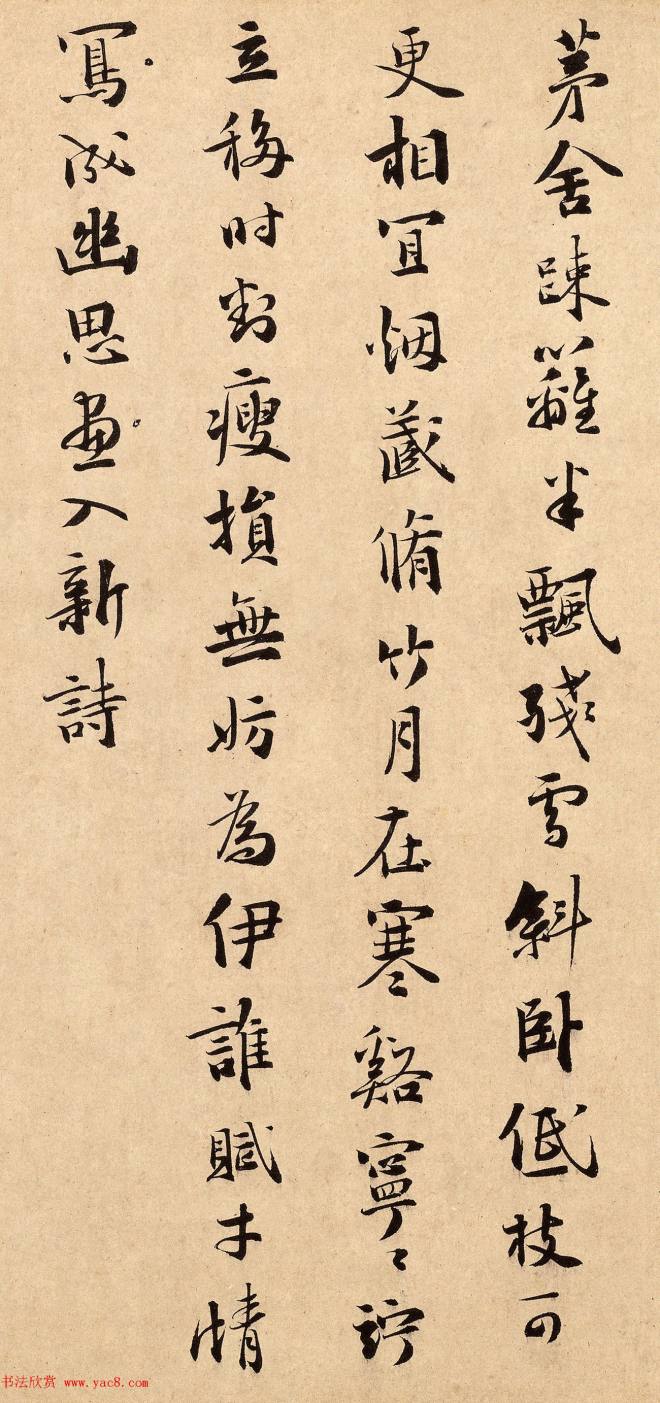 茅舍踈籬半飄殘雪斜卧低枝可
更相宜烟蔵脩竹月在寒谿寧〻竚
立移時判瘦損無妨為伊誰賦才情
寫成幽思畫入新詩
书法欣赏 www.yac8.com